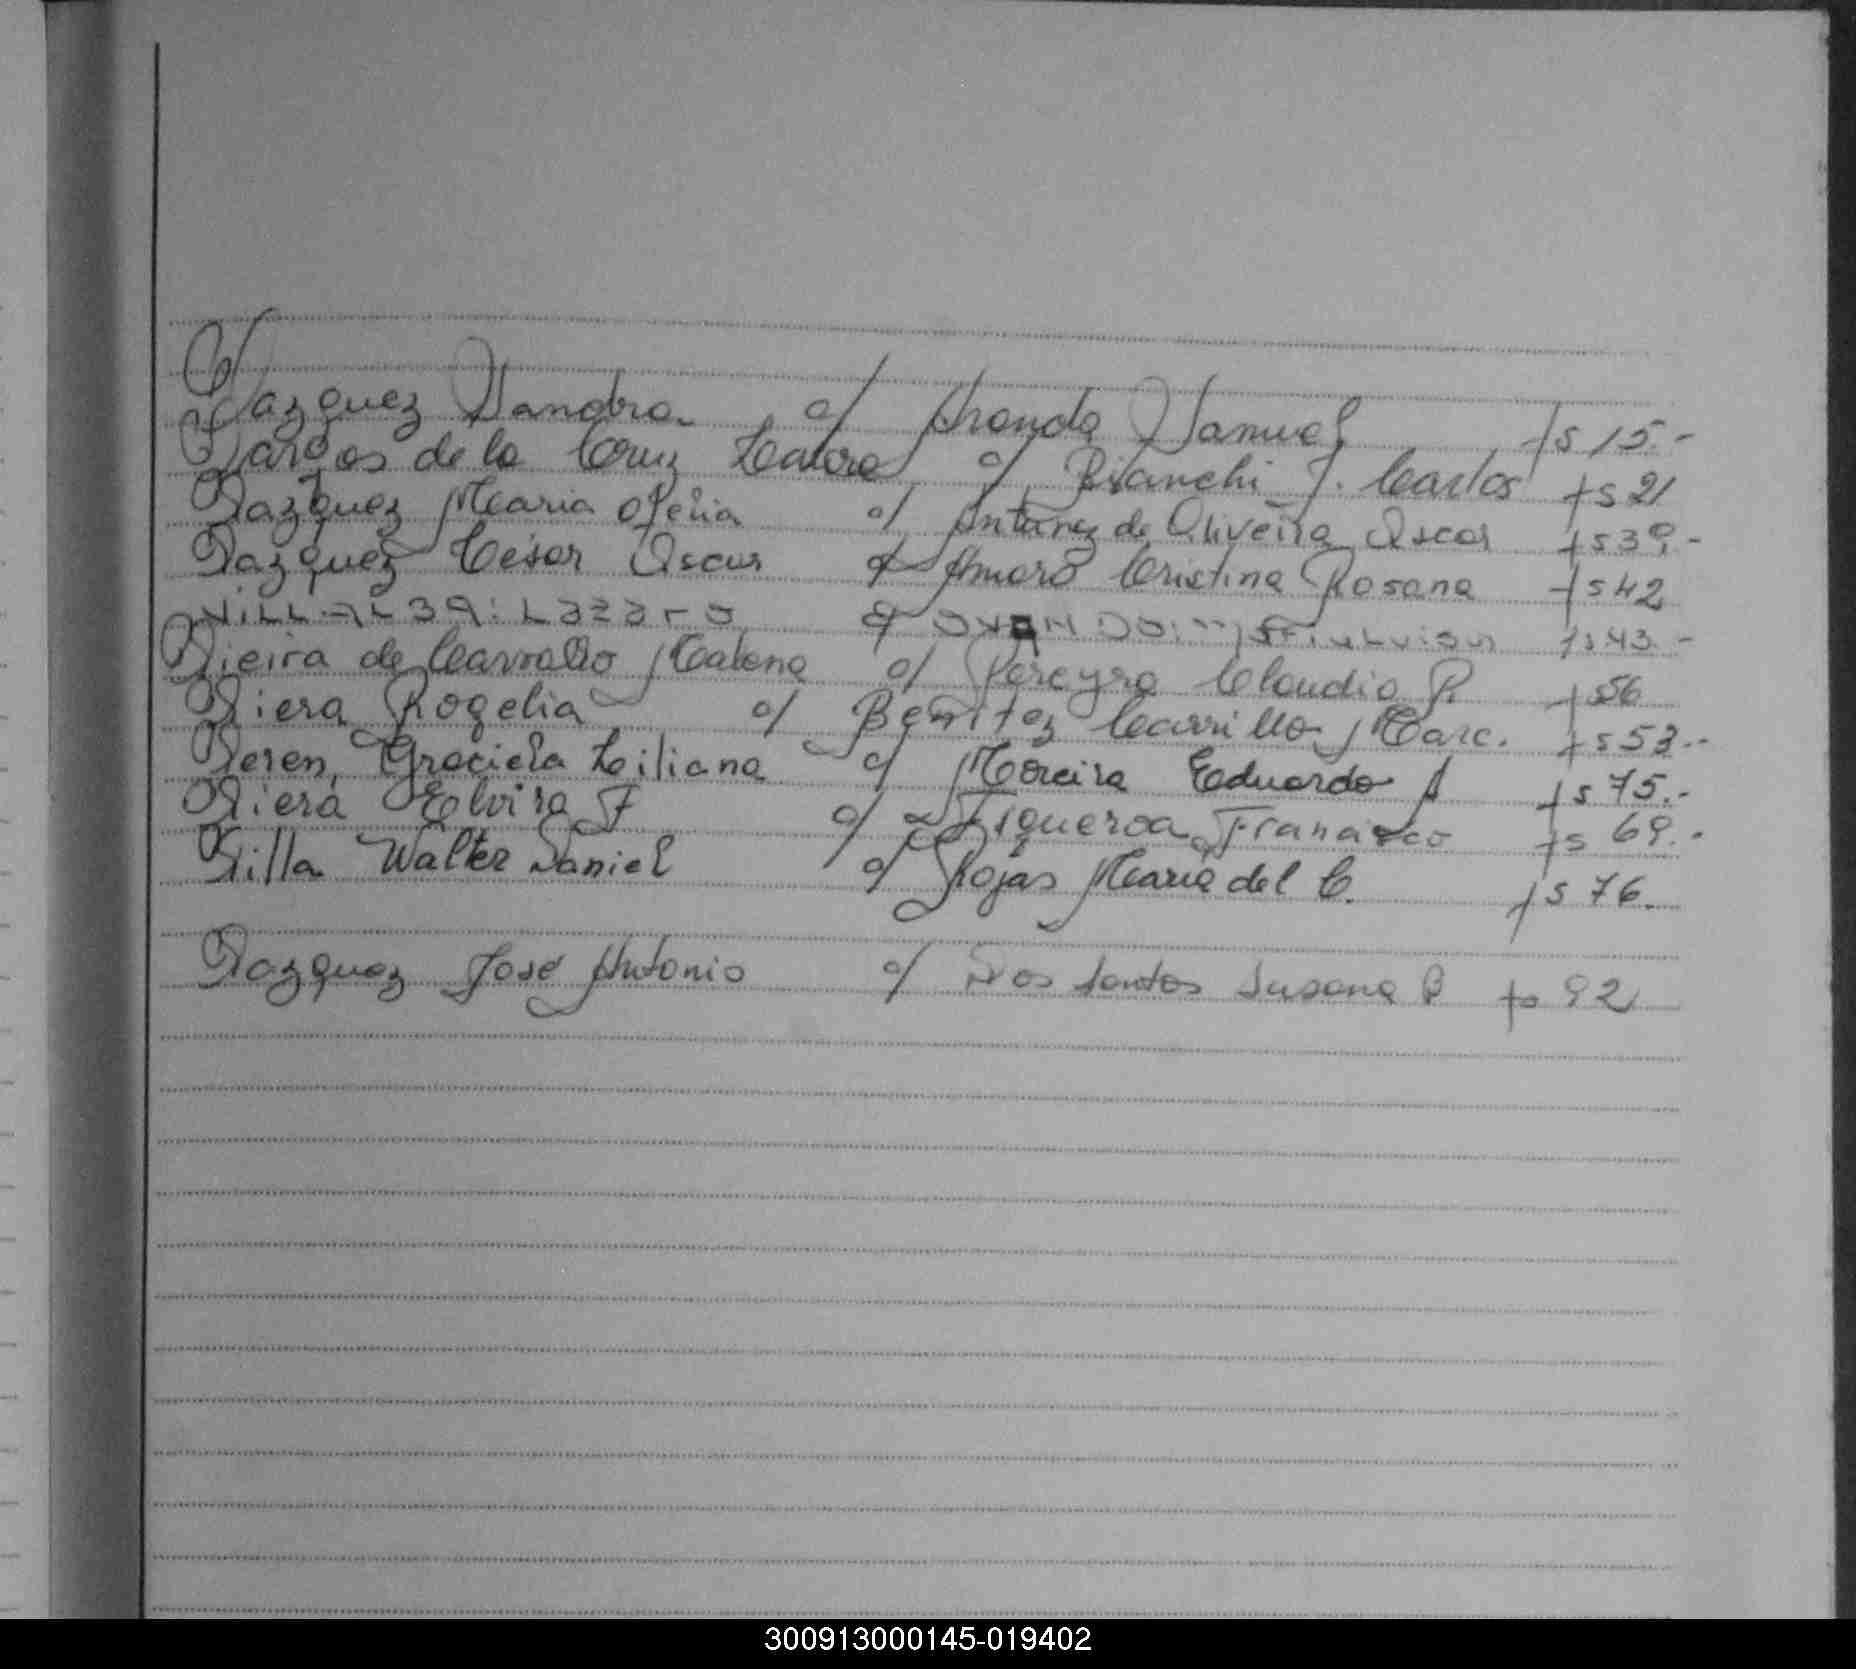 Vazquez Sandra c/ Aranda Samuel fs 15.-
Vargas de la Cruz Laura c/ Bianchi J. Carlos fs 21
Vazquez Maria Ofelia c/ Antunez de Oliveira Oscar fs 39.-
Vazquez César Oscar c/ Amaro Cristina Rosana fs 42
VILLALBA: LAZARO c/ fs 43.-
Vieira de Carvallo Malena c/ Pereyra Claudio R. fs 56
Viera Rogelia c/ Benitez Carrillo Marc. fs 53.-
Veren, Graciela Liliana c/ Moreira Eduardo A fs 75.-
Viera Elvira F c/ Figueroa Francisco fs 69.-
Villa Walter Daniel c/ Rojas Maria del C. fs 76.
Vazquez José Antonio c/ Dos Santos Susana B fs 92
300913000145-019402